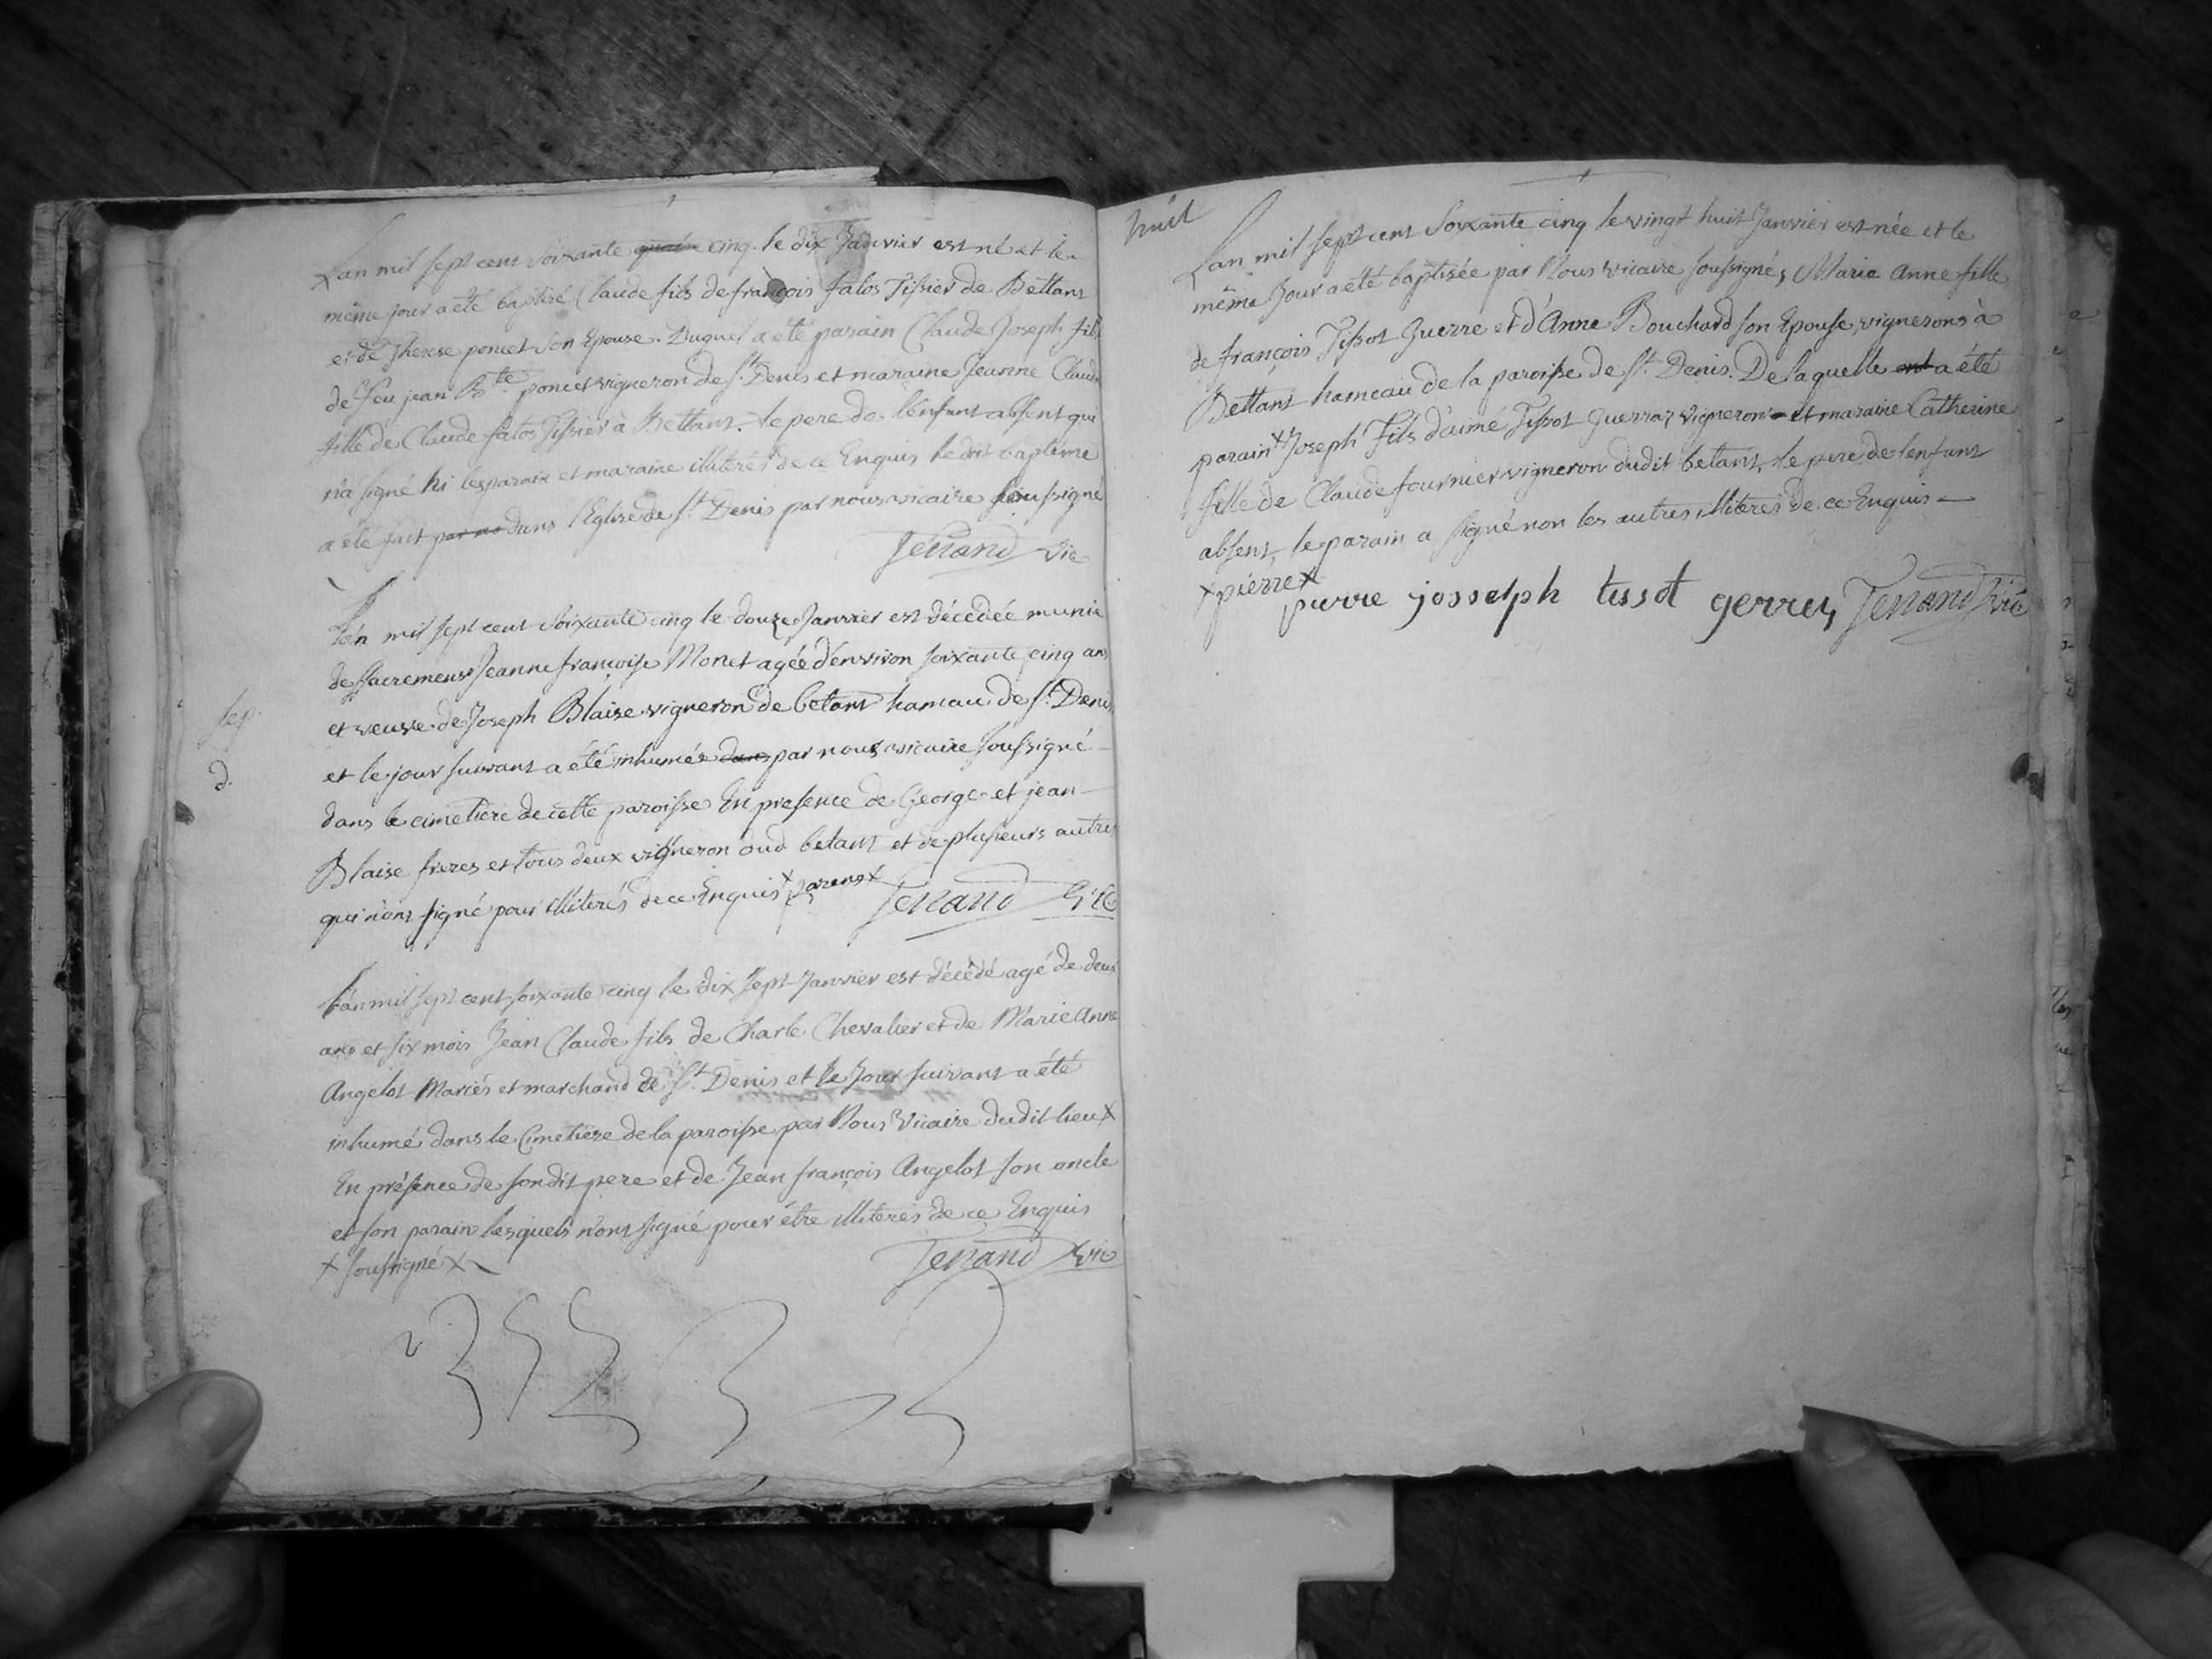 Lan mil sept cent Soixante quatre cinq le dix Janvier est né et le
même jour a été baptisé Claude fils de françois falos Tissier de Bettant
et de Therese poncet Son Epouse. Duquel a été parain Claude Joseph fils
de feu jean Bte. poncet vigneron de St. Denis et maraine Jeanne Claude
fille de Claude falos Tissier à Bettant. le pere de l'enfant absent qui
n'a signé ni les parain et maraine illiterés de ce Enquis le dit baptême
a été fait par no dans l'Eglise de St. Denis par nous vicaire soussigné
Tenand Vic
L'an mil sept cent Soixante cinq le douze Janvier est décédée munie
de Sacremens Jeanne françoise Monet agée d'environ soixante cinq ans
et veuve de Joseph Blaise vigneron de betant hameau de St. Denis
et le jour suivant a été inhumée dans par nous vicaire soussigné
d.
dans le cimetiere de cette paroisse En presence de George et jean
Blaise freres et tous deux vigneron dud betant et de plusieurs autres
qui n'ont signé pour illiterés de ce Enquis x parens x
Tenand Vic
L'an mil sept cent soixante cinq le dix sept Janvier est décédé agé de deux
ans et six mois Jean Claude fils de Charle Chevalier et de Marie Anne
Angelot Mariés et marchand de St. Denis et le Jour suivant a été
inhumé dans le Cimetiere de la paroisse par Nous Vicaire dudit lieu x
En présence de son dit pere et de Jean françois Angelot son oncle
et son parain lesquels n'ont signé pour être illiterés de ce Enquis
x soussigné x
Tenand Vic
huit
Lan mil sept cent Soixante cinq le vingt huit Janvier est née et le
même Jour a été baptisée par Nous vicaire soussigné, Marie Anne fille
de françois Tissot Guerre et d'Anne Bouchard son Epouse, vignerons à
Bettant hameau de la paroisse de St. Denis. De laquelle ont a été
parain x Joseph fils d'aimé Tissot Guerraz vigneron et maraine Catherine
fille de Claude fournier vigneron dudit betant, le pere de lenfant
absent, le parain a signé non les autres illiterés de ce Enquis
x pierre x
pierre josselph tissot gerrey Tenand Vic